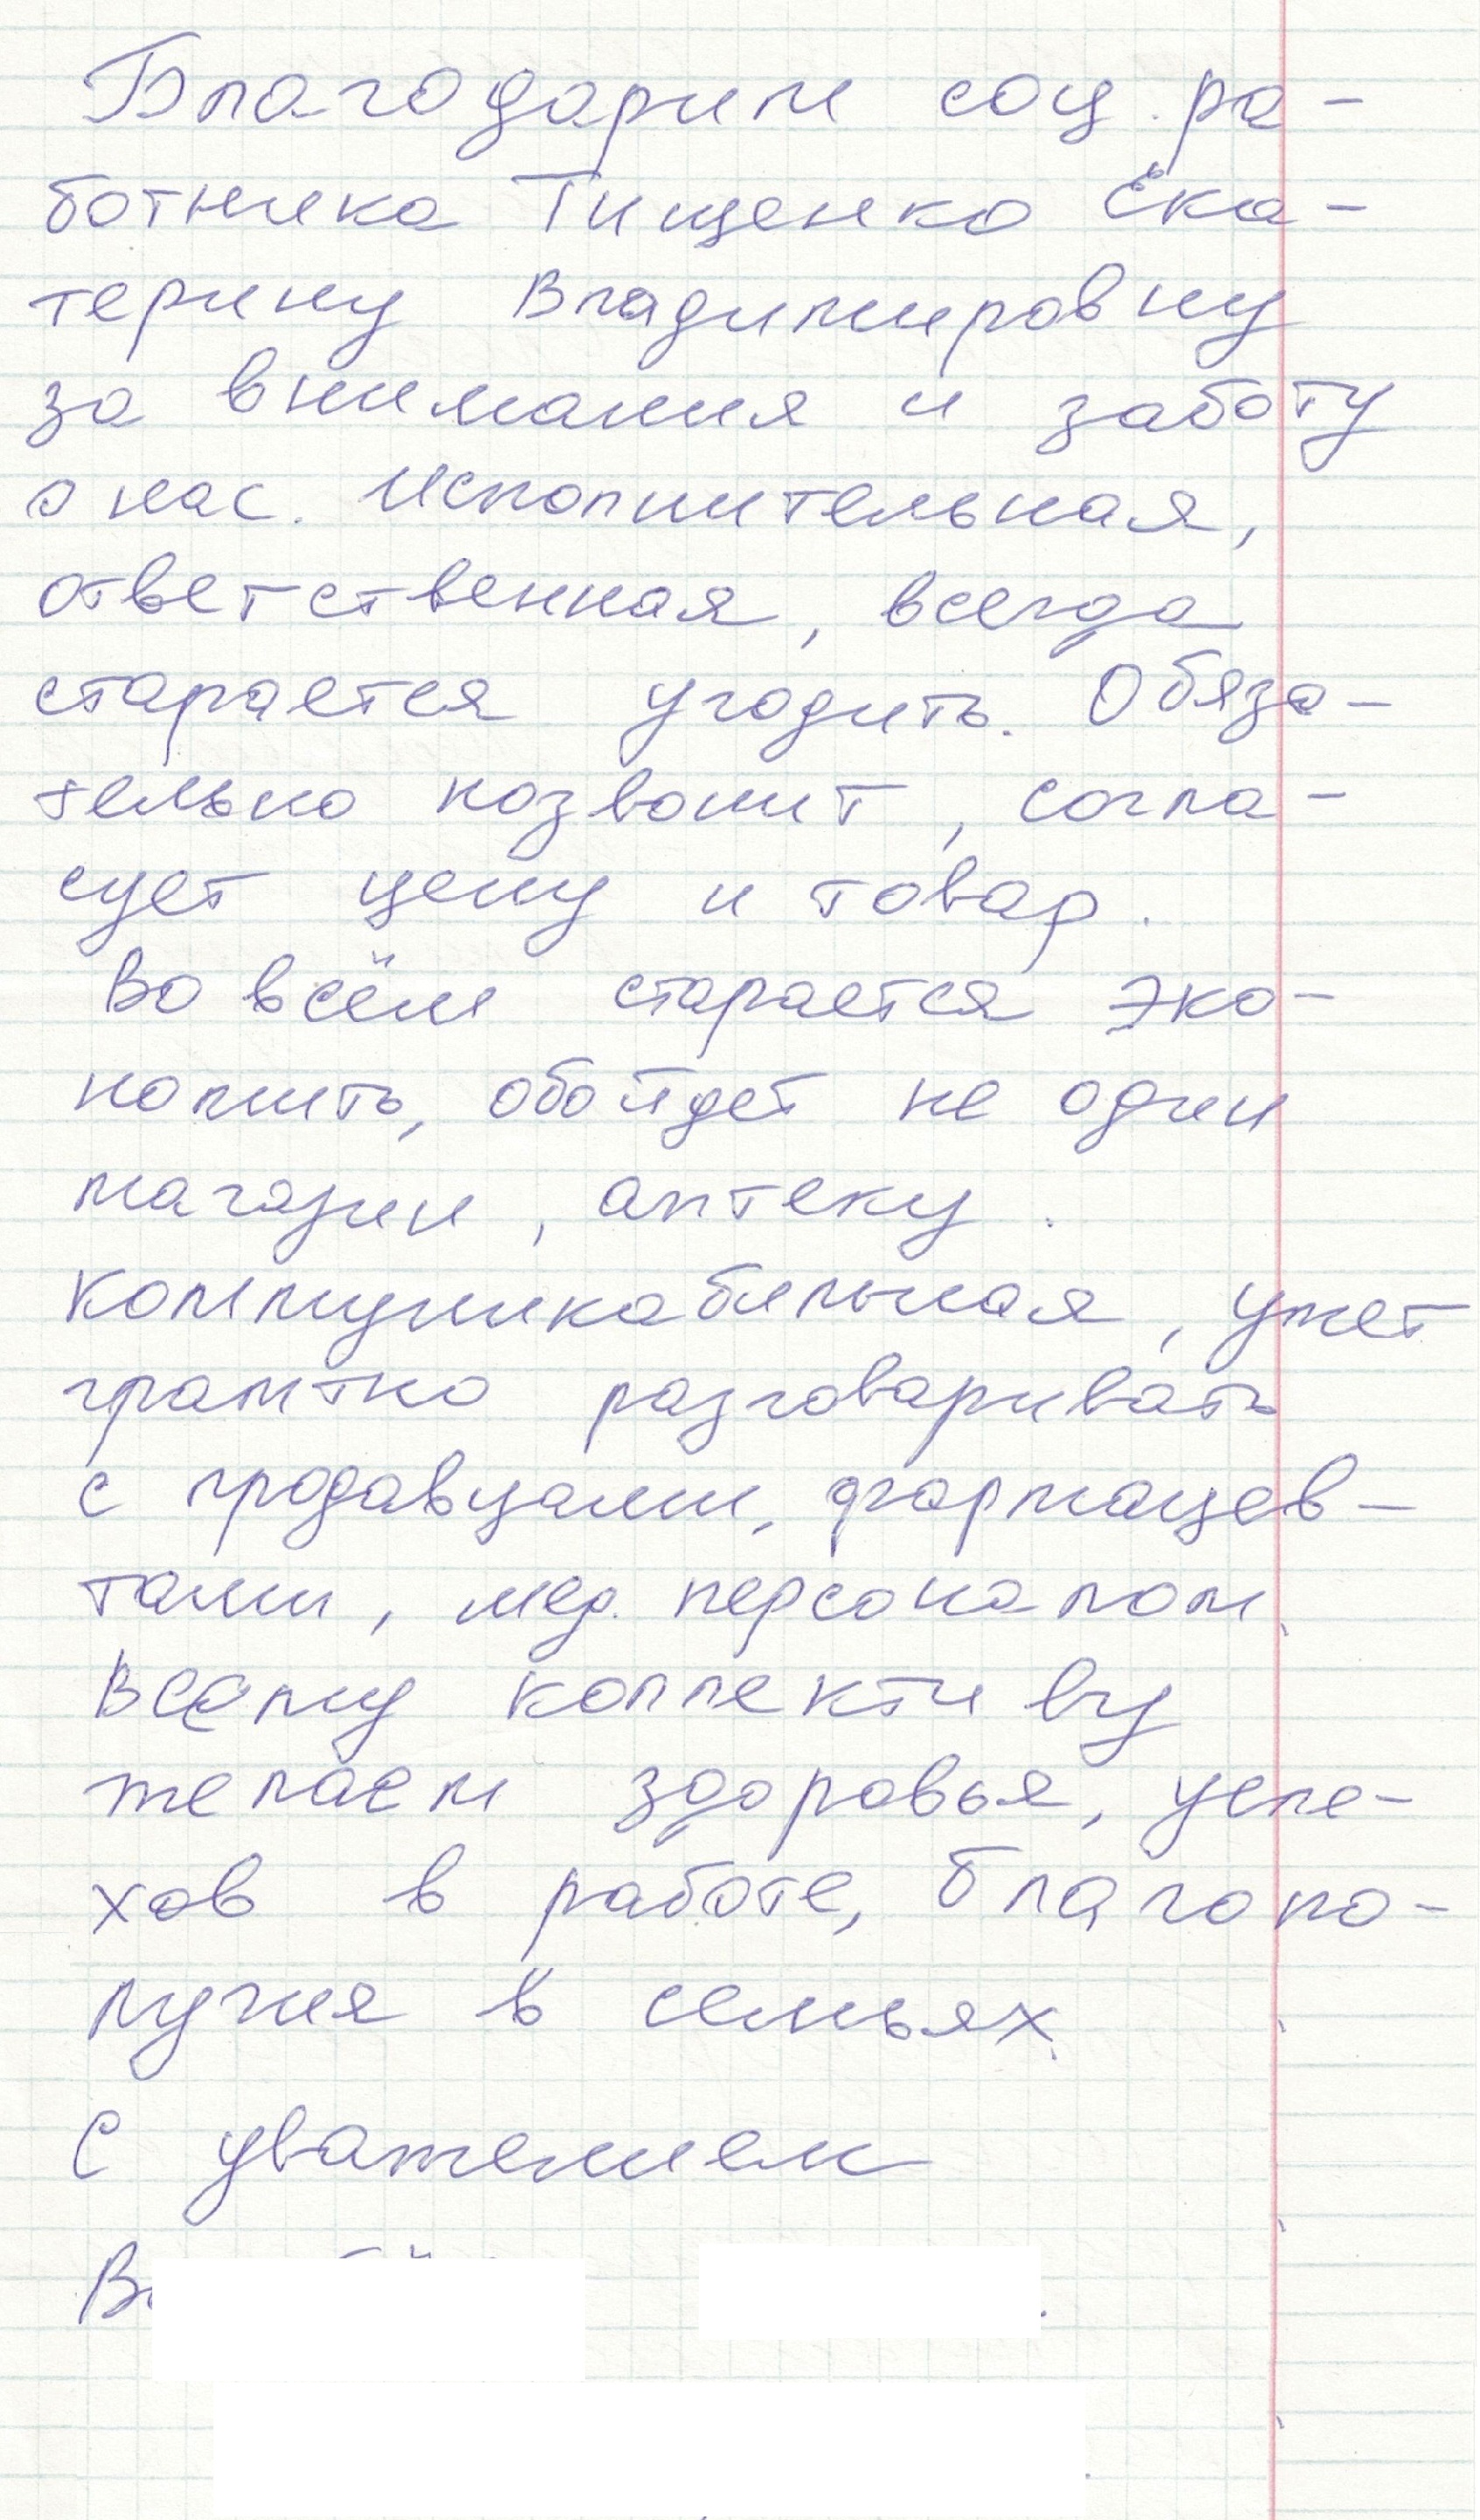 Благодарим соц. ра-
ботника Тищенко Ека-
терину Владимировну
за внимания и заботу
о нас. Исполнительная,
ответственная, всегда
старается угодить. Обяза-
тельно позвонит, согла-
сует цену и товар.
Во всём старается эко-
номить, обойдет не один
магазин, аптеку.
Коммуникабильная, умет
грамтно разговаривать
с продавцами, фармацев-
тами, мед. персоналом.
Всему коллективу
желаем здоровья, успе-
хов в работе, благопо-
лучия в семьях.
С уважением